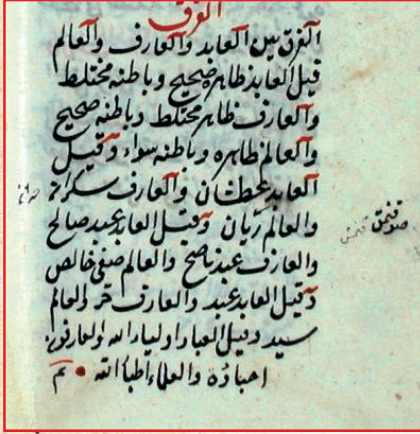 الفرق
الفرق بين العابد والعارف والعالم
قيل العابد ظاهره صحيح وباطنه مختلط
والعارف ظاهره مختلط وباطنه صحيح
والعالم ظاهره وباطنه سواء وقيل
العابد عطشان والعارف سكران
والعالم ريان وقيل العابد عبد صالح
والعارف عبد ناصح والعالم صفي خالص
وقيل العابد عبد والعارف حر والعالم
سيد وقيل العباد اولياء الله والعارفون
احباؤه والعلماء اطباء الله تم